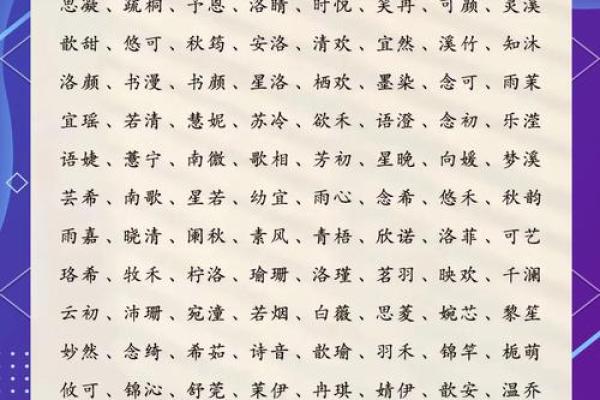 思凝、疏桐、予恩、洛晴、时悦、笑冉、可颜、灵溪
歆甜、悠可、秋筠、安洛、清欢、宜然、溪竹、知沐
洛颜、书漫、书颜、星洛、栖欢、墨染、念可、雨茉
宜瑶、若清、慧妮、苏冷、欲禾、语澄、念初、乐滢
语婕、薏宁、南微、歌相、芳初、星晚、向媛、梦溪
芸希、南歌、星若、幼宜、雨心、念希、悠禾、秋韵
雨嘉、晓清、阑秋、素风、青梧、欣诺、洛菲、可艺
珞希、牧禾、柠洛、瑜珊、洛瑾、茗羽、映欢、千澜
云初、沛珊、宛潼、若烟、白薇、思菱、婉芯、黎笙
妙然、念绮、希茹、诗音、歆瑜、羽禾、锦竿、栀萌
攸可、锦沁、舒莞、茉伊、冉琪、婧伊、歆安、温乔